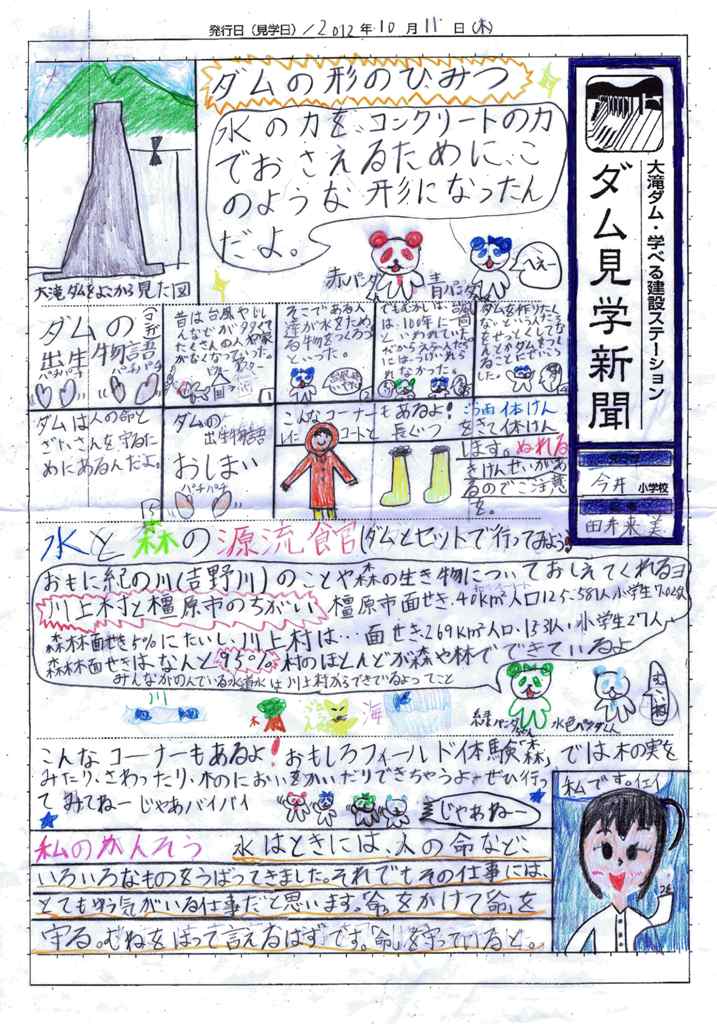 発行日（見学日）/2012年10月11日(木)
大滝ダム・学べる建設ステーション
ダム見学新聞
今井 小学校
ダムの形のひみつ
水の力を、コンクリートの力
でおさえるために、こ
のような形になったん
だよ。
赤パンダ
青パンダ
へぇー
大滝ダムをよこから見た図
ダムの
出生物語
パチパチ
パチパチ
昔は台風やじし
んなどが多くて
たくさんの人や家
がなくなってった。
1
そこである人
達が水をため
る物をつくろう
といった。
2
でもむかしは、
は、100年に一回
といわれていた。
3
ダムを作りたく
ないという人
4
ダムは人の命と
ざいさんを守るた
めにあるんだよ。
5
ダムの
出生物語
おしまい
パチパチ
こんなコーナーもあるよ!
レインコートと長ぐつ
をきて体けん
します。ぬれる
きけんせいがあ
るのでご注意
を。
水と森の源流館(ダムとセットで行ってみよう!
おもに紀の川(吉野川)のことや森の生き物についておしえてくれるヨ
川上村と橿原市のちがい 橿原市面せき.40km²人口125.581人小学生
森林面せき5%にたいし、川上村は…面せき269km²人口
森林面せきは、なんと95%村のほとんどが森や林でできているよ
みんながのんでいる水道水は川上村からできているよってこと
川
木
海
緑パンダちゃん
水色パンダくん
こんなコーナーもあるよ!おもしろフィールド体験「森」では木の実を
みたり、さわったり、木のにおいをかいだりできちゃうよ。ぜひ行っ
て みてねー じゃあバイバイ
じゃあねー
私です。イエイ
私のかんそう 水はときには、人の命など、
いろいろなものをうばってきました。それでもその仕事には、
とてもゆう気がいる仕事だと思います。命をかけて命を
守る。むねをはって言えるはずです。「命」を守っていると。